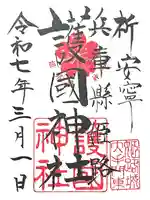 祈 安寧
兵庫縣姫路
護國神社
令和七年三月一日
護國神社